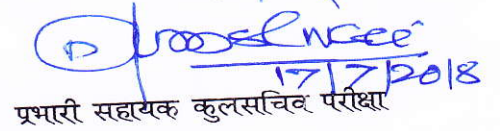 17/7/2018
प्रभारी सहायक कुलसचिव परीक्षा